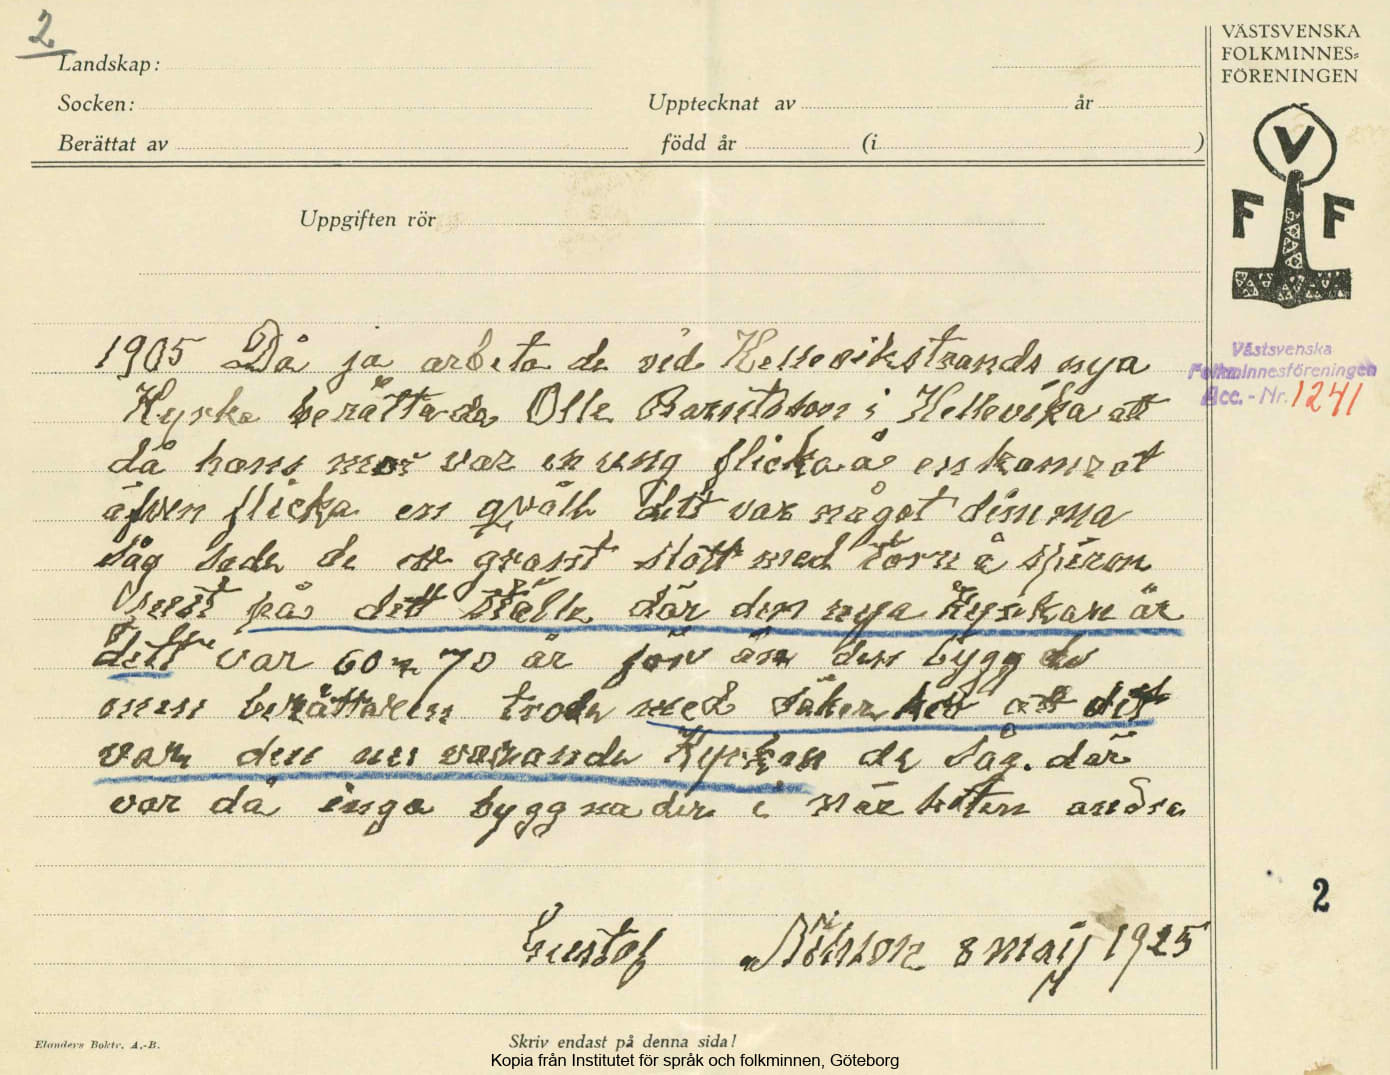 2
Landskap:
Socken:
Upptecknat av år
Berättat av född år (i )
VÄSTSVENSKA
FOLKMINNES=
FÖRENINGEN
V
F F
Uppgiften rör
Västsvenska
Folkminnesföreningen
Acc. - Nr. 1241
1905 Då ja arbeta de vid Hellevikstrands nya
Kyrka berätta de Olle Berntsson i Hellevika att
då hans mor var en ung flicka å en kamrat
äfven flicka en qväll dett var något dimma
såg sade de ett grant slott med torn å spiror
just på dett ställe där den nya Kyrkan är
dett var 60 a 70 år för än den bygg des
men berättaren trode med säker het att dett
var den nu varande Kyrkan de såg. där
var då inga bygg nader i när heten andra
Gustaf Nilsson 8 maij 1925
2
Elanders Boktr. A.-B.
Skriv endast på denna sida!
Kopia från Institutet för språk och folkminnen, Göteborg